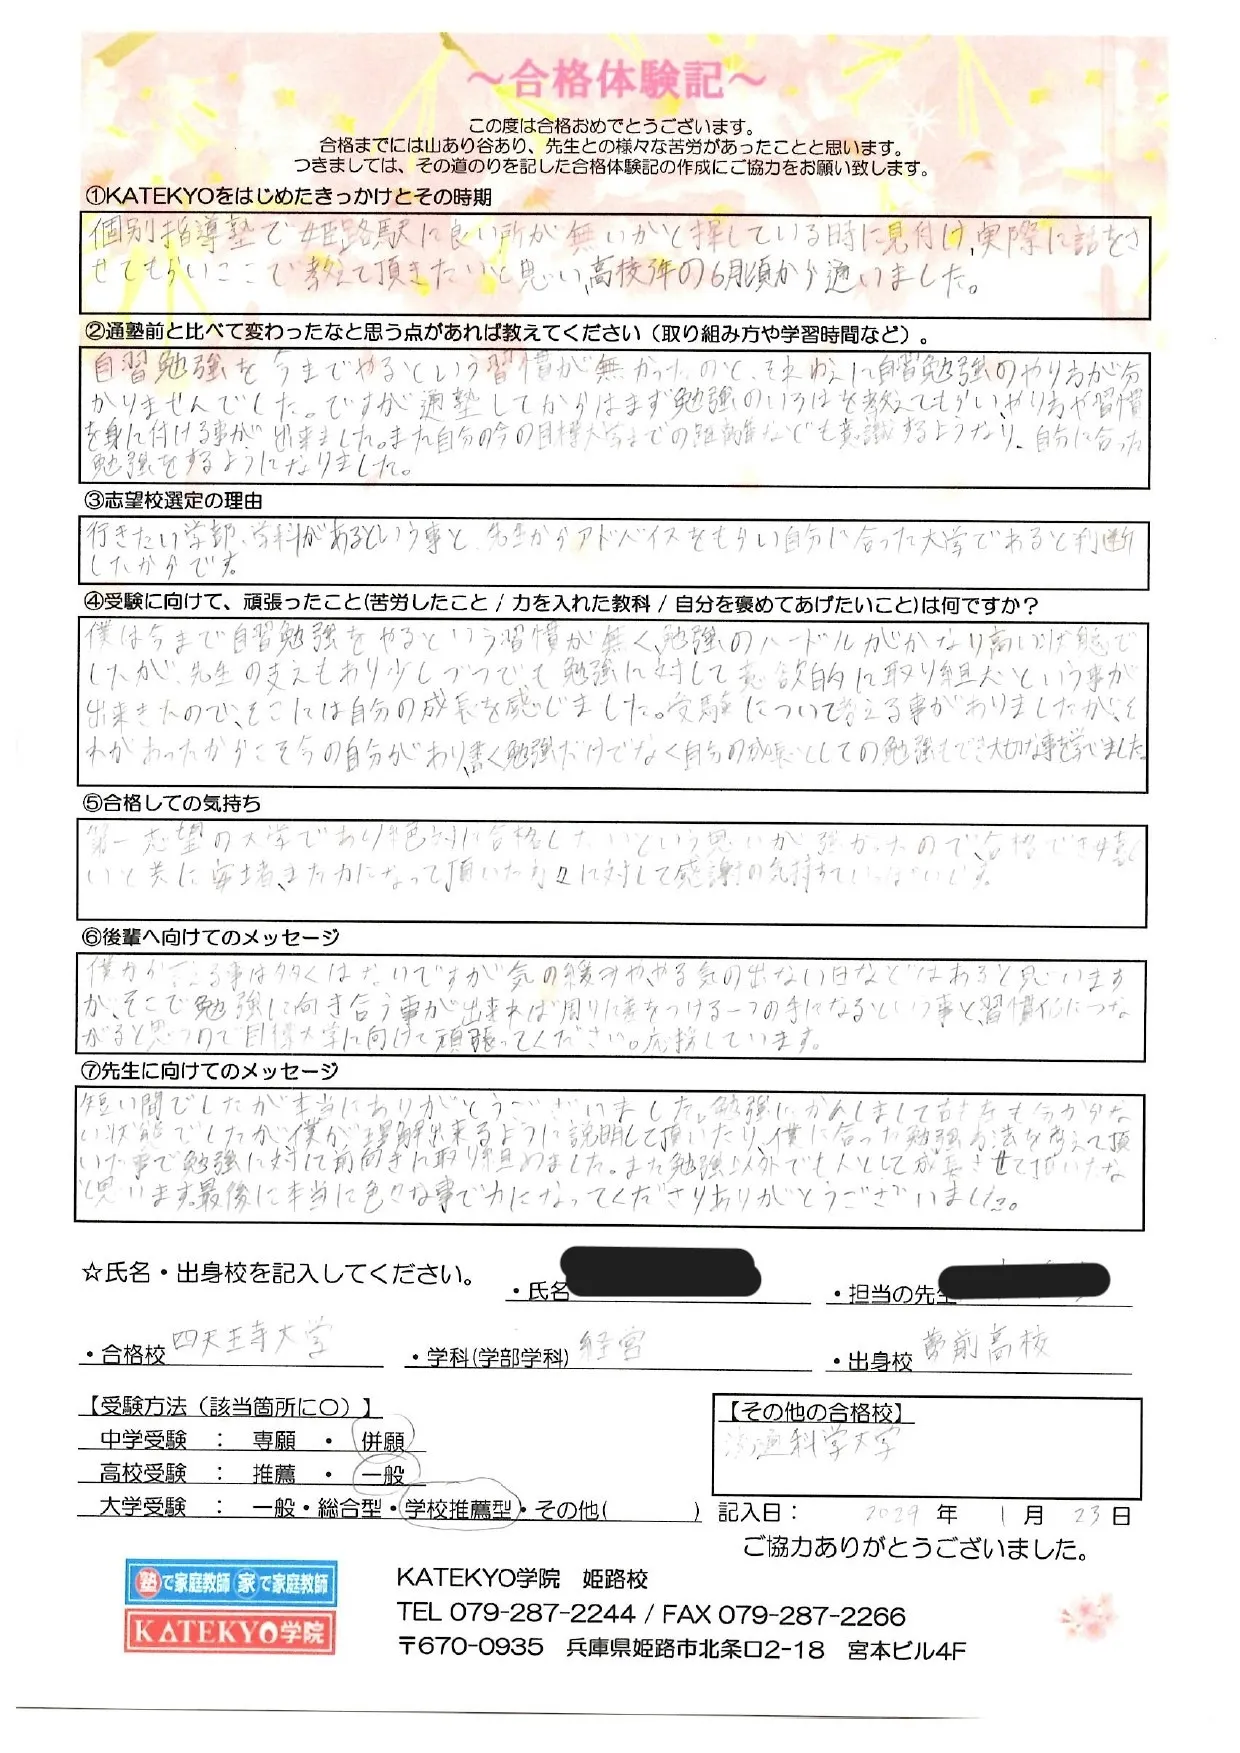 ～合格体験記～
この度は合格おめでとうございます。
合格までには山あり谷あり、先生との様々な苦労があったことと思います。
つきましては、その道のりを記した合格体験記の作成にご協力をお願い致します。
①KATEKYOをはじめたきっかけとその時期
個別指導塾で姫路駅に良い所が無いかと探している時に見付け、実際に話をさ
せてもらいここで教えて頂きたいと思い、高校3年の6月頃から通いました。
②通塾前と比べて変わったなと思う点があれば教えてください（取り組み方や学習時間など）。
自習勉強を今までやるという習慣が無かったのと、それゆえに自習勉強のやり方が分
かりませんでした。ですが通塾してからはまず勉強のいろはを教えてもらい、やり方や習慣
を身に付ける事が出来ました。また自分の今の目標大学までの距離などでも意識するようなり、自分に合った
勉強をするようになりました。
③志望校選定の理由
行きたい学部、学科があるという事と、先生からアドバイスをもらい自分に合った大学であると判断
したからです。
④受験に向けて、頑張ったこと(苦労したこと / 力を入れた教科 / 自分を褒めてあげたいこと)は何ですか？
僕は今まで自習勉強をやるという習慣が無く、勉強のハードルがかなり高い状態で
したが、先生の支えもあり少しづつでも勉強に対して意欲的に取り組むという事が
出来きたので、そこには自分の成長を感じました。受験について考える事がありましたが、そ
れがあったからこそ今の自分があり、勉強だけでなく自分の成長としての勉強もでき大切な事を学べました
⑤合格しての気持ち
第一志望の大学であり絶対に合格したいという思いが強かったので、合格でき嬉し
いと共に安堵、また力になって頂いた方々に対して感謝の気持ちでいっぱいです。
⑥後輩へ向けてのメッセージ
僕から言える事は多くはないですが気の緩みややる気の出ない日などはあると思います
が、そこで勉強に向き合う事が出来れば周りに差をつける一つの手になるという事と、習慣化につな
がると思うので目標大学に向けて頑張ってください。応援しています。
⑦先生に向けてのメッセージ
短い間でしたが本当にありがとうございました。勉強にかんしまして右も左も分からな
い状態でしたが僕が理解出来るように説明して頂いたり、僕に合った勉強方法を考えて頂
いた事で勉強に対して前向きに取り組めました。また勉強以外でも人として成長させて頂いたな
と思います。最後に本当に色々な事で力になってくださりありがとうございました。
☆氏名・出身校を記入してください。
・氏名
・担当の先生
・合格校 四天王寺大学
・学科(学部学科) 経営
・出身校 夢前高校
【受験方法（該当箇所に○）】
中学受験 ： 専願 ・ 併願
高校受験 ： 推薦 ・ 一般
大学受験 ： 一般・総合型・学校推薦型・その他( )
【その他の合格校】
科学大学
記入日： 2024 年 1 月 23 日
ご協力ありがとうございました。
塾で家庭教師 家で家庭教師
KATEKYO学院
KATEKYO学院 姫路校
TEL 079-287-2244 / FAX 079-287-2266
〒670-0935 兵庫県姫路市北条口2-18 宮本ビル4F